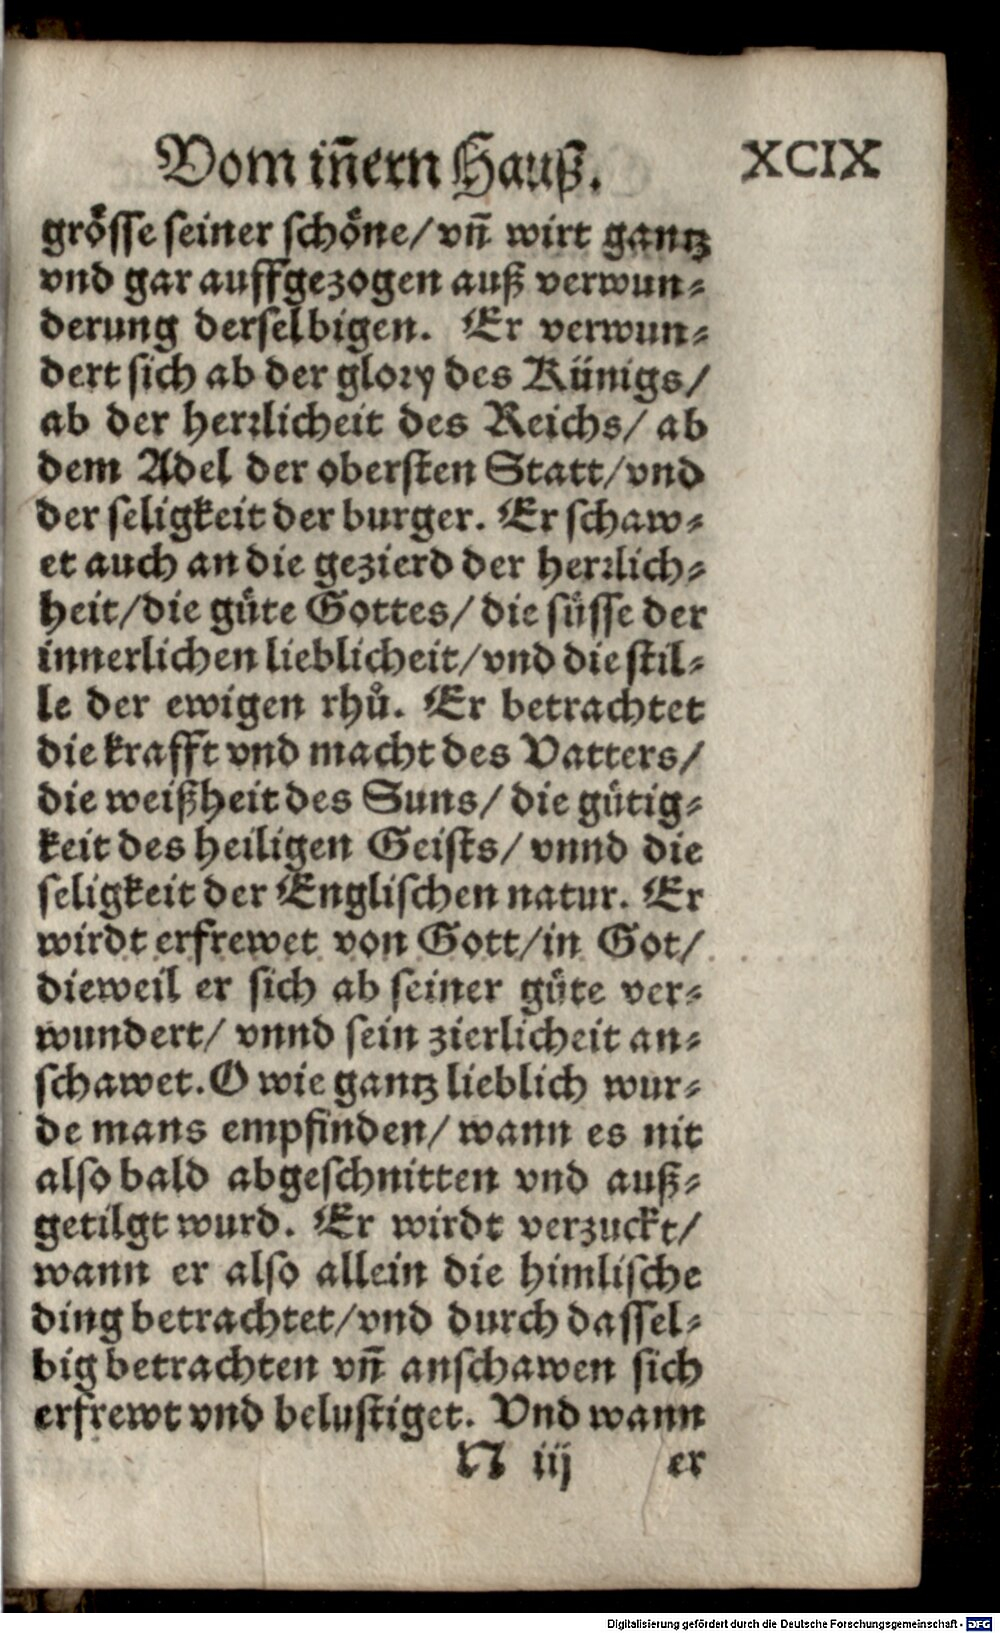 Vom iñern Hauß. XCIX
groͤsse seiner schoͤne/ vñ wirt gantz
vnd gar auffgezogen auß verwun⸗
derung derselbigen. Er verwun⸗
dert sich ab der glory des Künigs/
ab der herꝛlicheit des Reichs/ ab
dem Adel der obersten Statt/ vnd
der seligkeit der burger. Er schaw⸗
et auch an die gezierd der herꝛlich⸗
heit/ die guͤte Gottes/ die suͤsse der
innerlichen lieblicheit/ vnd die stil⸗
le der ewigen rhuͦ. Er betrachtet
die krafft vnd macht des Vatters/
die weißheit des Suns/ die guͤtig⸗
keit des heiligen Geists/ vnnd die
seligkeit der Englischen natur. Er
wirdt erfrewet von Gott/ in Got/
dieweil er sich ab seiner guͤte ver⸗
wundert/ vnnd sein zierlicheit an⸗
schawet. O wie gantz lieblich wur⸗
de mans empfinden/ wann es nit
also bald abgeschnitten vnd auß⸗
getilgt wurd. Er wirdt verzuckt/
wann er also allein die himlische
ding betrachtet/ vnd durch dassel⸗
big betrachten vñ anschawen sich
erfrewt vnd belustiget. Vnd wann
N iij er
Digitalisierung gefördert durch die Deutsche Forschungsgemeinschaft - DFG